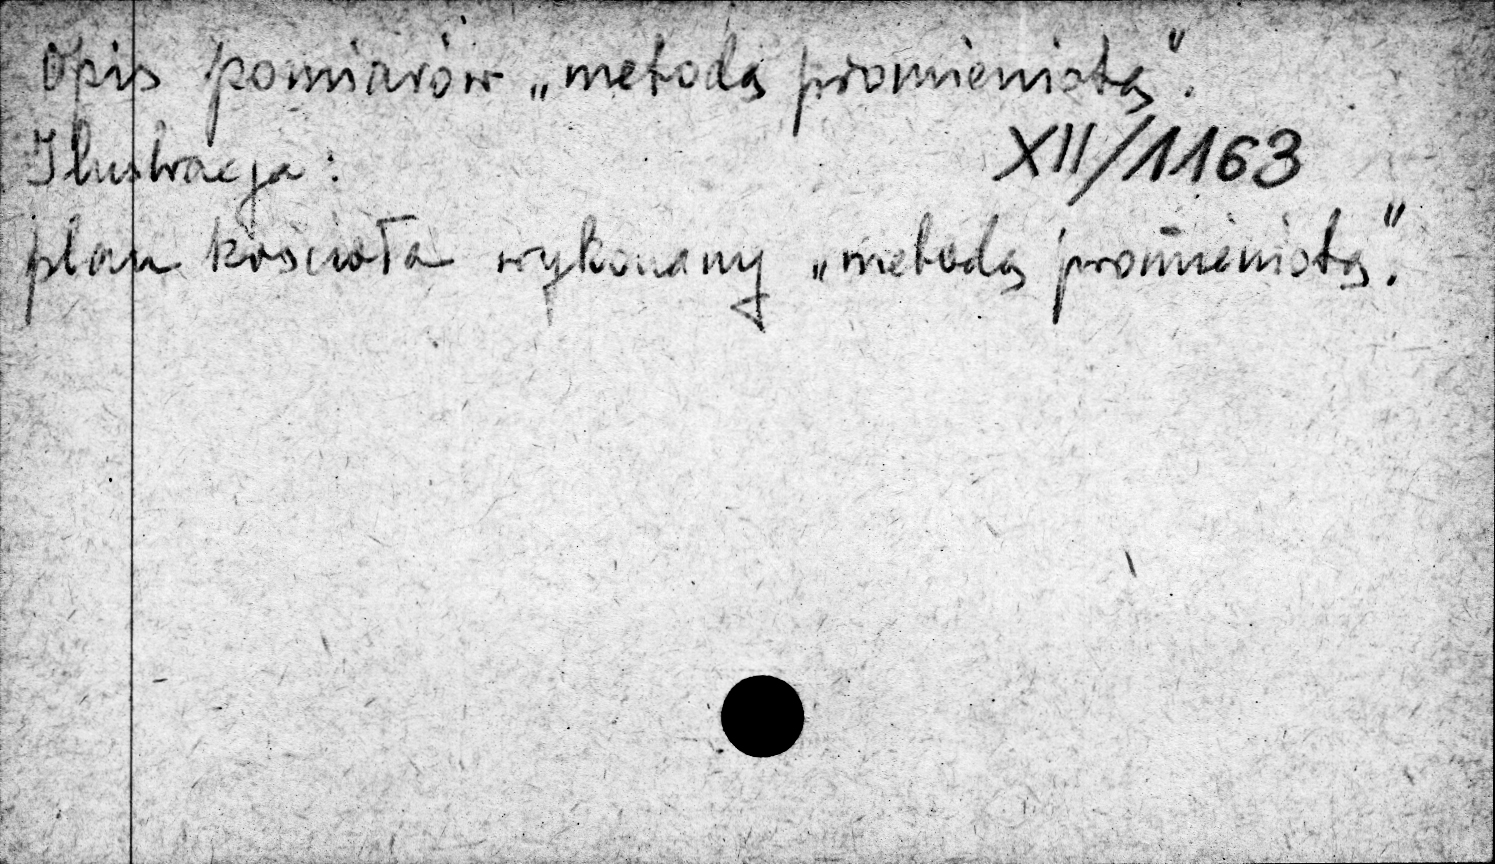 Opis pomiarów „metodą promienistą".
Ilustracja: XII/1163
plan kościoła wykonany „metodą promienistą".